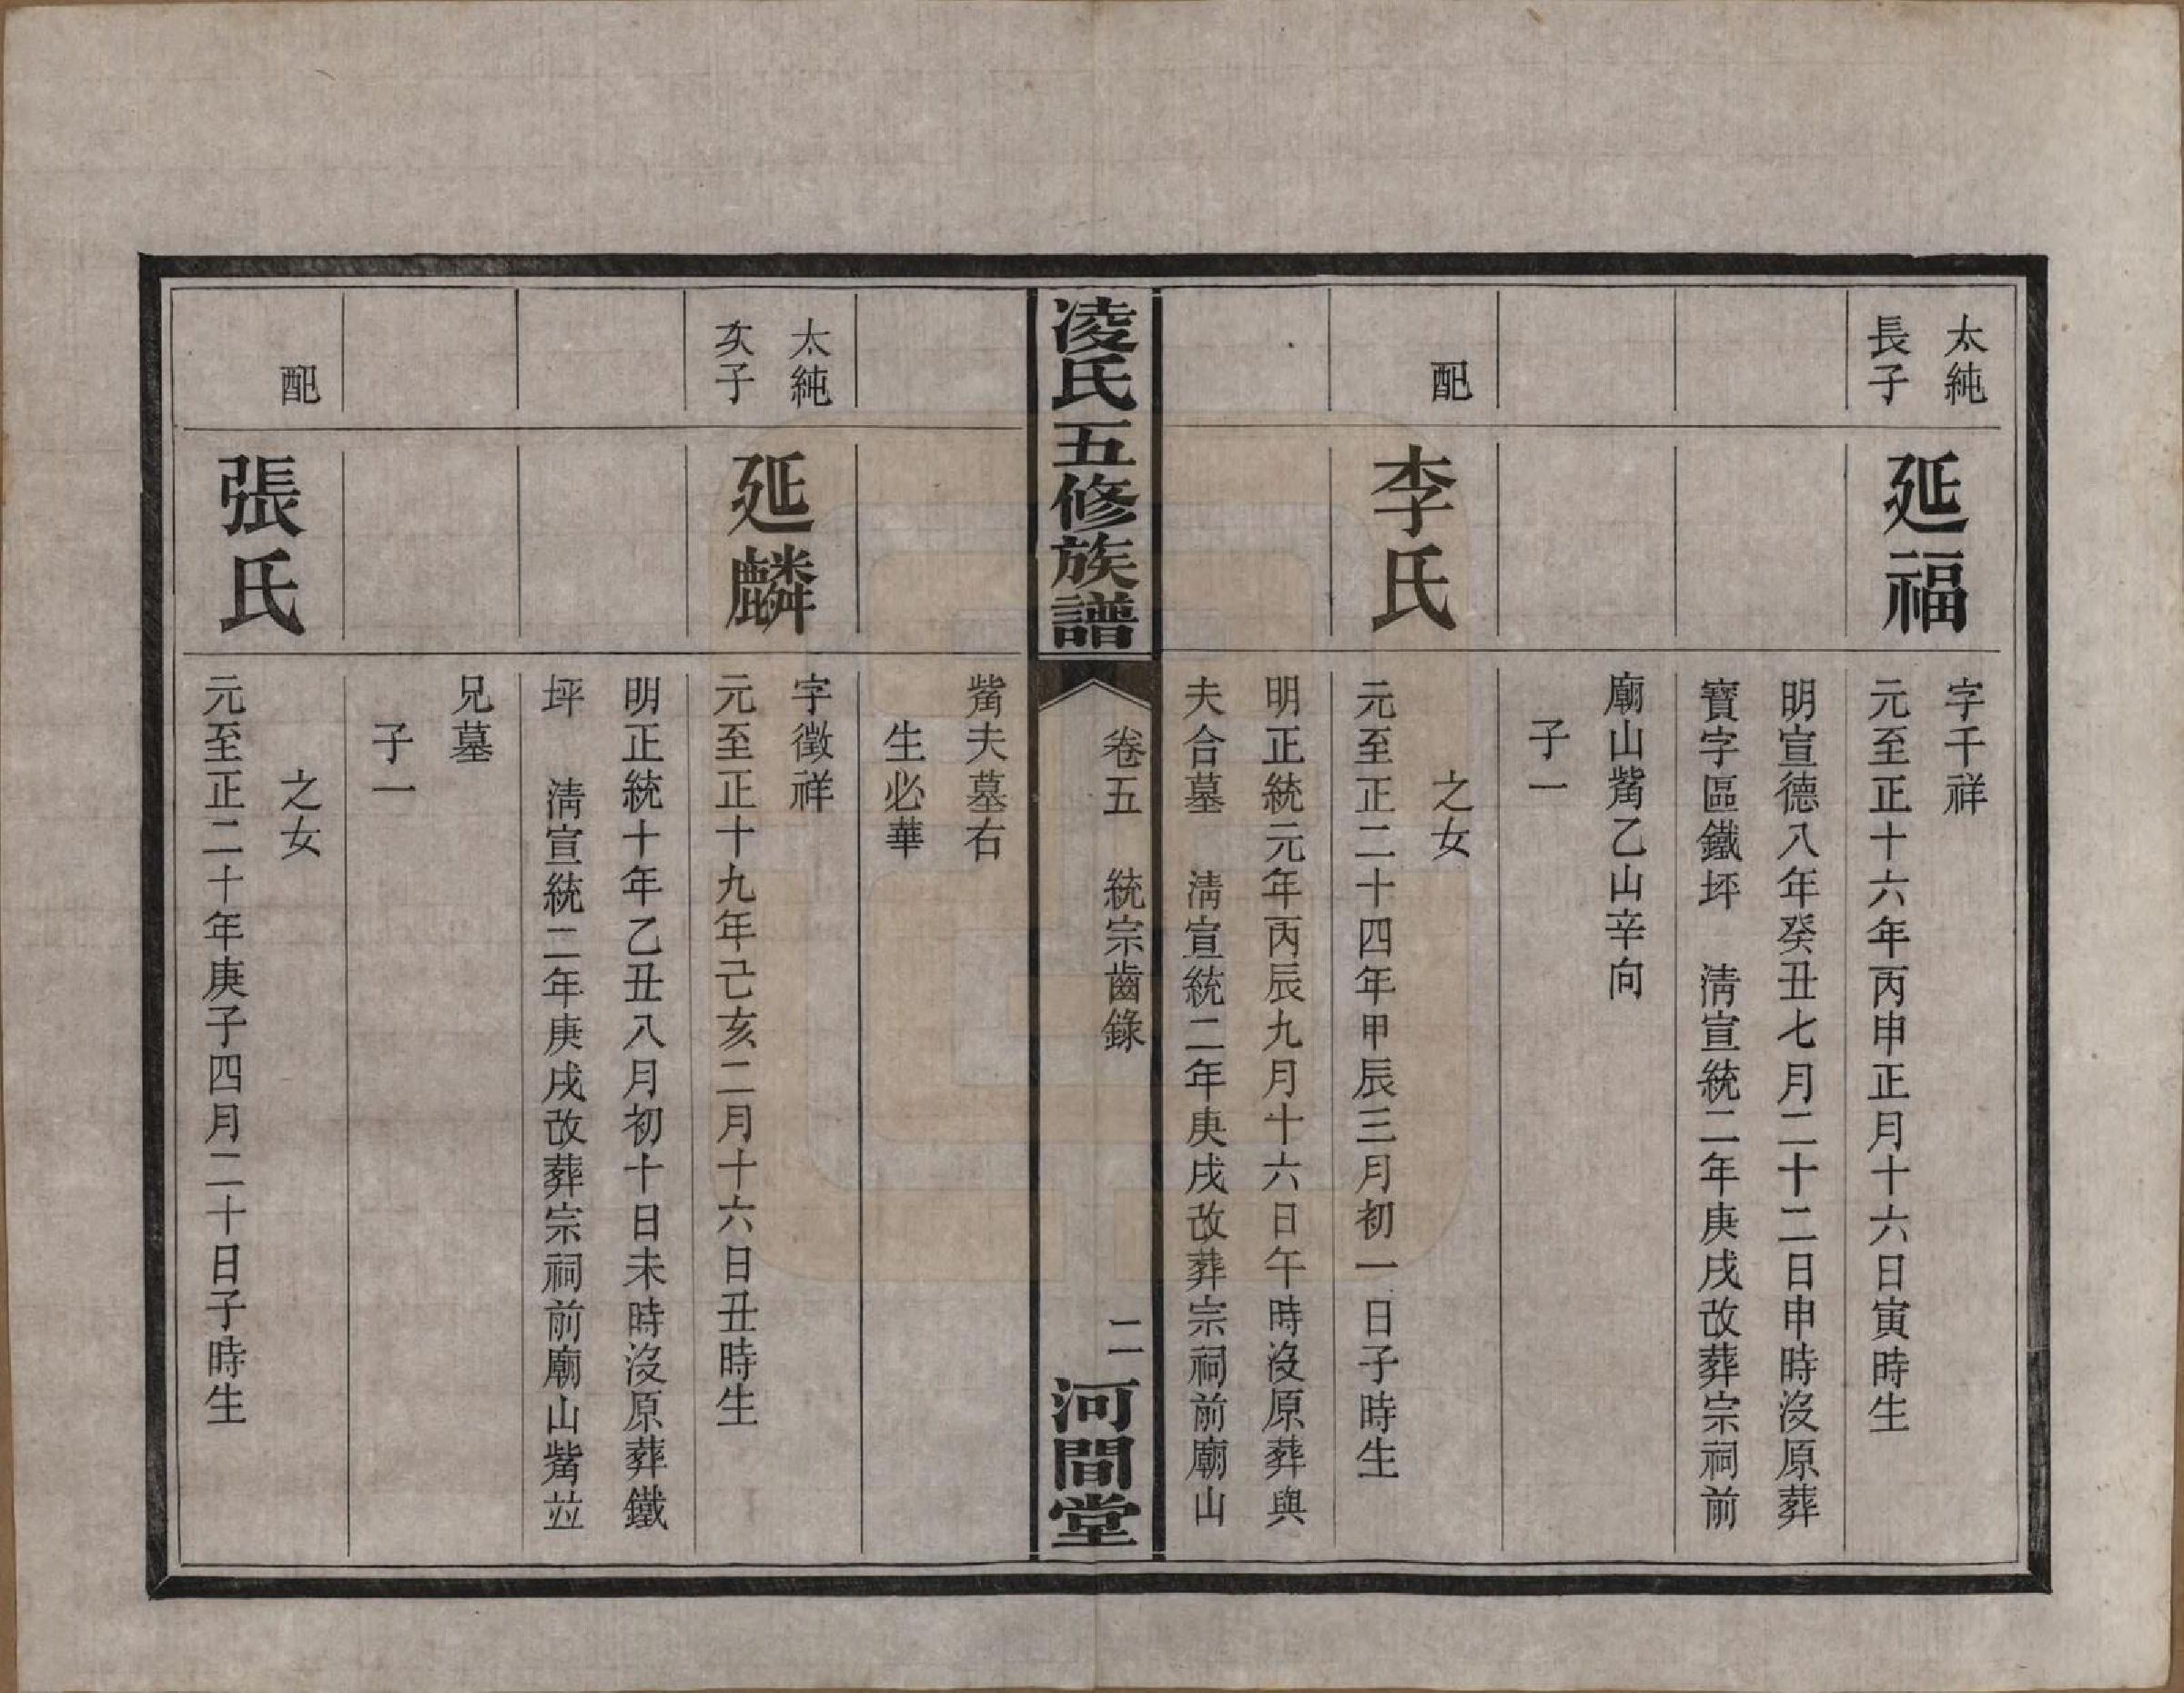 太純
長子
延福
字千祥
元至正十六年丙申正月十六日寅時生
明宣德八年癸丑七月二十二日申時沒原葬
寶字區鐵坪　淸宣統二年庚戌改葬宗祠前
廟山觜乙山辛向
子一
配
李氏
之女
元至正二十四年甲辰三月初一日子時生
明正統元年丙辰九月十六日午時沒原葬與
夫合墓　淸宣統二年庚戌改葬宗祠前廟山
凌氏五修族譜
卷五　統宗齒錄
二
河間堂
觜夫墓右
生必華
太純
次子
延麟
字徵祥
元至正十九年己亥二月十六日丑時生
明正統十年乙丑八月初十日未時沒原葬鐵
坪　淸宣統二年庚戌改葬宗祠前廟山觜竝
兄墓
子一
配
張氏
之女
元至正二十年庚子四月二十日子時生